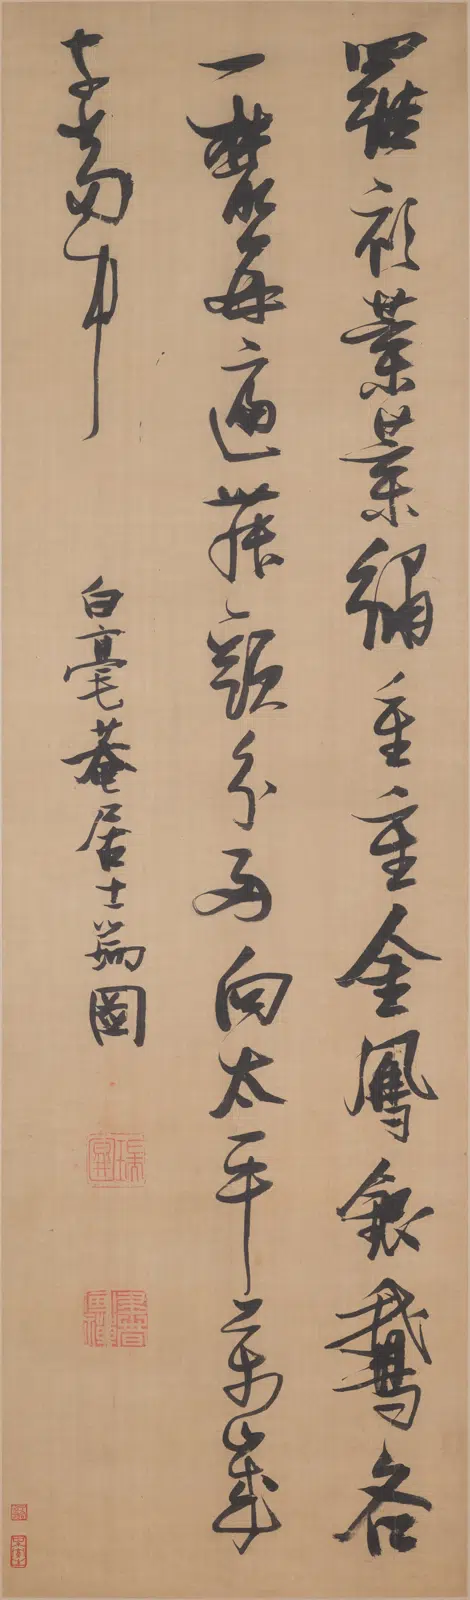 羅衫葉葉繡重重金鳳銀鵝各
一叢每遍舞頭分兩向太平萬歲
字當中
白毫菴居士瑞圖